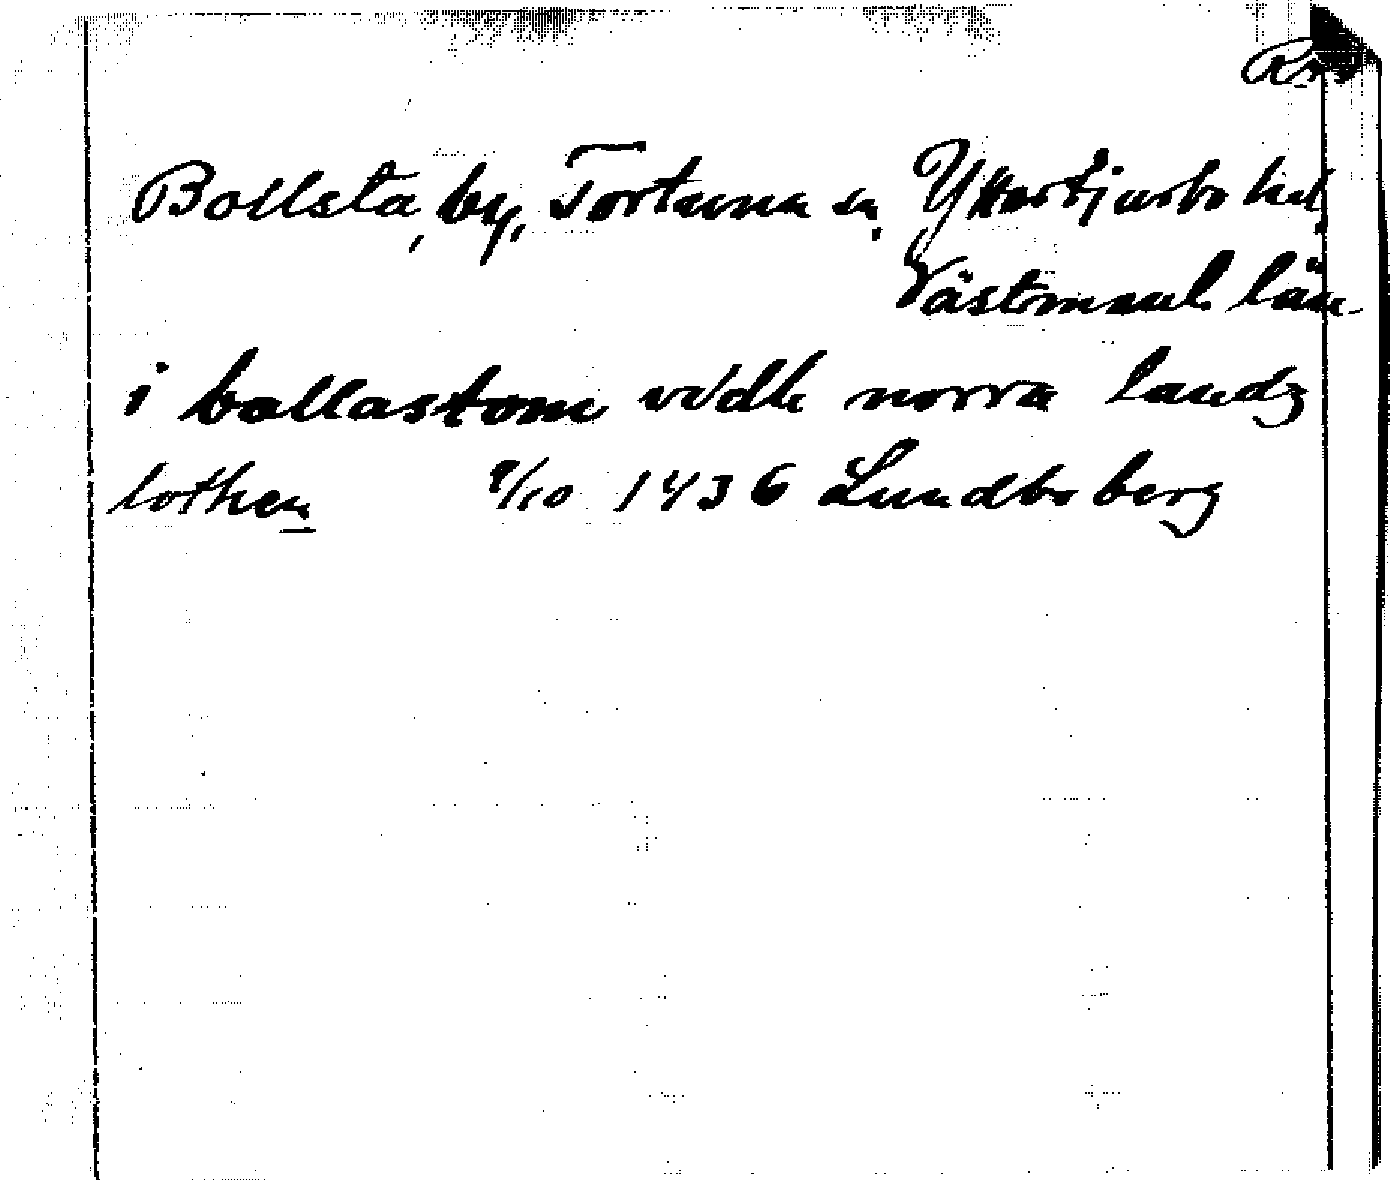 Bollsta, by, Tortuna sn, Yttertjurbo hd,
Västmanl. län
i ballastom vidh norra landz
lothen 9/10 1436 Lundbo berg